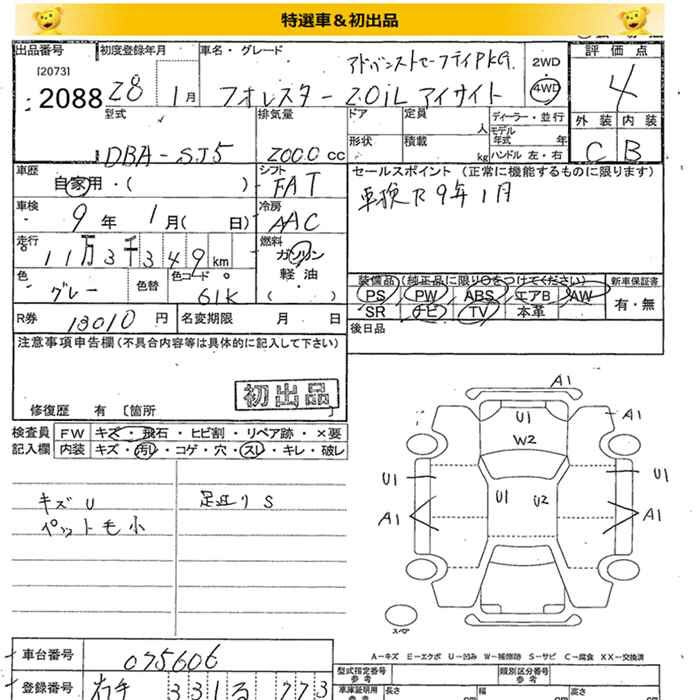 特選車&初出品
出品番号
[2073]
2088
初度登録年月
28 1月
車名・グレード
アドバンストセーフティPKG.
フォレスター 2.0iL アイサイト
2WD
4WD
評価点
4
外装 内装
C B
型式
DBA-SJ5
排気量
2000 cc
ドア
定員
人
形状
積載
kg
ディーラー・並行
モデル年式 年
ハンドル 左・右
車歴
自家用・( )
シフト
FAT
セールスポイント (正常に機能するものに限ります)
車検R9年1月
車検
9年 1月( 日)
冷房
AAC
走行
11万3千349km
燃料
ガソリン
軽油
( )
色
グレー
色替
色コードNo
61K
装備品 (純正品に限り○をつけてください)
PS PW ABS エアB AW
SR ナビ TV 本革
新車保証書
有・無
R券 13010円
名変期限 月 日
後日品
注意事項申告欄(不具合内容等は具体的に記入して下さい)
初出品
修復歴 有 [箇所 ]
検査員記入欄
FW キズ・飛石・ヒビ割・リペア跡・×要
内装 キズ・汚レ・コゲ・穴・スレ・キレ・破レ
キズU
ペット毛小
足廻りS
A1
U1
A1
W2
U1
U1
U2
U1
A1
A1
スペア
A-キズ E-エクボ U-凹み W-補修跡 S-サビ C-腐食 XX-交換済
車台番号
075606
登録番号
331
773
型式指定番号
参考
類別区分番号
参考
車庫証明用
参考
長さ
cm
幅
cm
高さ
cm